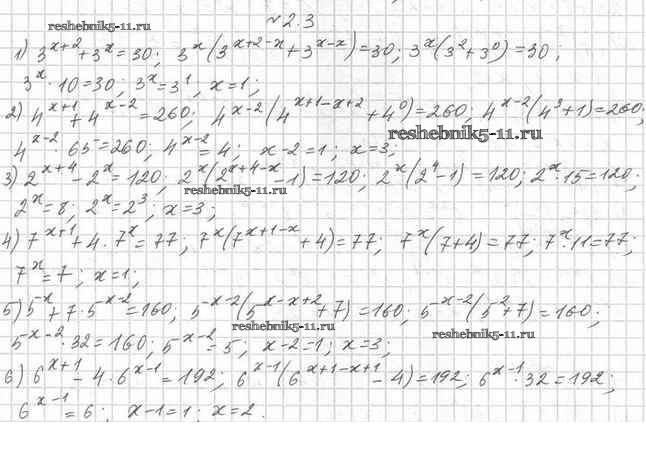 reshebnik5-11.ru
№2.3
1) 3^(x+2) + 3^x = 30; 3^x(3^(x+2-x) + 3^(x-x)) = 30; 3^x(3^2 + 3^0) = 30;
3^x · 10 = 30; 3^x = 3^1; x = 1;
2) 4^(x+1) + 4^(x-2) = 260; 4^(x-2)(4^(x+1-x+2) + 4^0) = 260; 4^(x-2)(4^3 + 1) = 260;
reshebnik5-11.ru
4^(x-2) · 65 = 260; 4^(x-2) = 4; x-2 = 1; x = 3;
3) 2^(x+4) - 2^x = 120; 2^x(2^(x+4-x) - 1) = 120; 2^x(2^4 - 1) = 120; 2^x · 15 = 120;
reshebnik5-11.ru
2^x = 8; 2^x = 2^3; x = 3;
4) 7^(x+1) + 4 · 7^x = 77; 7^x(7^(x+1-x) + 4) = 77; 7^x(7+4) = 77; 7^x · 11 = 77;
7^x = 7; x = 1;
5) 5^x + 7 · 5^(x-2) = 160; 5^(x-2)(5^(x-x+2) + 7) = 160; 5^(x-2)(5^2 + 7) = 160;
reshebnik5-11.ru reshebnik5-11.ru
5^(x-2) · 32 = 160; 5^(x-2) = 5; x-2 = 1; x = 3;
6) 6^(x+1) - 4 · 6^(x-1) = 192; 6^(x-1)(6^(x+1-x+1) - 4) = 192; 6^(x-1) · 32 = 192;
6^(x-1) = 6; x-1 = 1; x = 2.